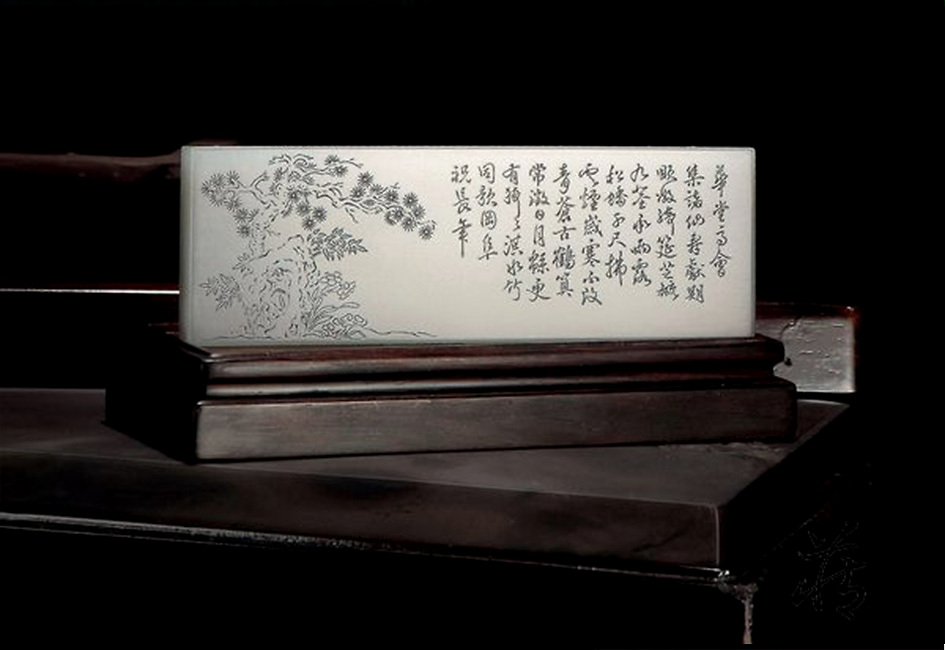 華堂高會
集諸仙壽獻期
頤敞綺筵芝
九莖承雨露
松矯千尺拂
雲煙歲寒不改
青蒼古鶴筭
常日月緜更
有猗猗淇水竹
同歌岡阜
祝長年